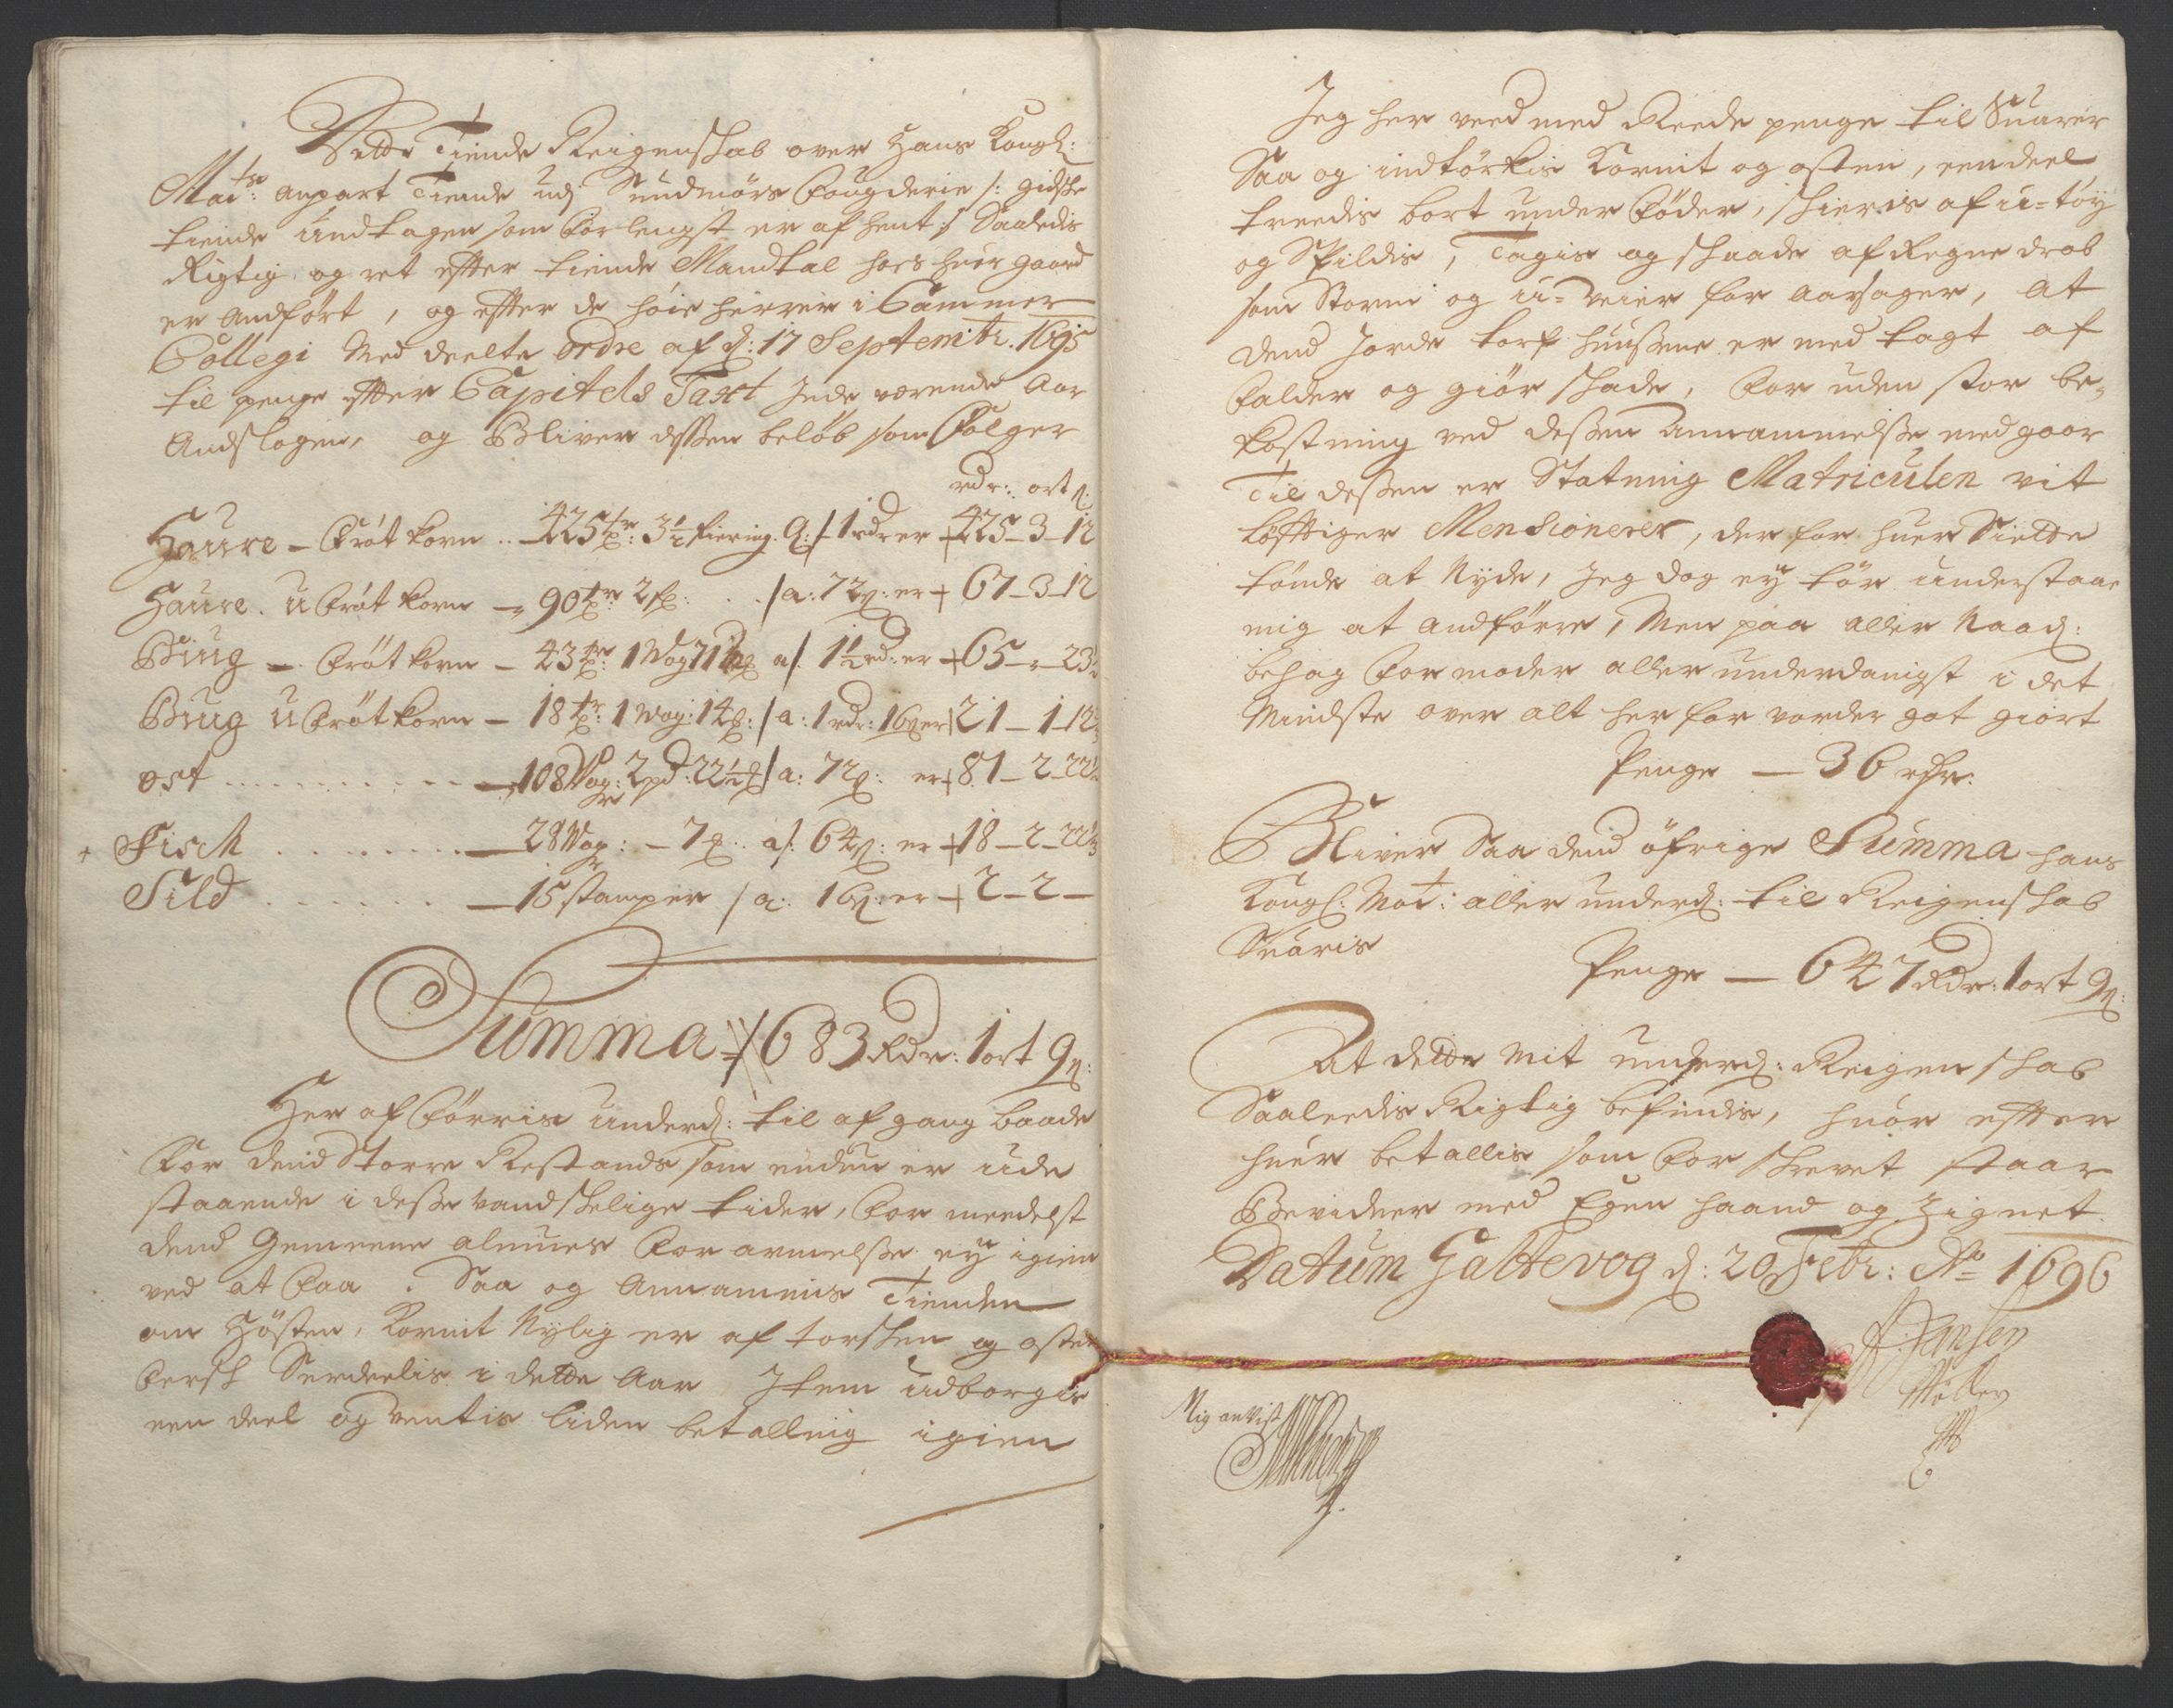 Dette Tiende Reigenskab over Hans Kongl:
Maits: anpart Tiende udj Sundmørs Fougderie /: Gidske
tiende undtagen som for lengst er afhent :/ Saaledis
Rigtig og ret effter tiende Mandtal hors huer gaard
er Andført, og effter de høie herrer i Cammer
Collegi Med deelte ordre af d: 17 Septembr. 1695
til penge effter Capitels Taxt Jede værende Aar
Andslagen, og Bliver dessen beløb som Følger
rdr: ort s:
Haure - Frøt korn .. 425 tr: 3½ fiering. Q: / 1 rdr er 425-3-12
Haure. u Frøt korn - 90 tr 2 f: . . / a: 72 s: er 67-3-12
Biug - Frøt korn - 43 tr: 1 Wog a/: 1½ rd: er 65-"-23
Biug u Frøt korn - 18 tr: 1 Wog: 14 /a: 1 rdr: 16 s er 21-1-12
ost . . . . 108 Wog: 2 pd: 22½ / a: 72 s: er 81-2-22
Fisch . . . . 28 Wog: - 7 a/: 64 s: er 18-2-22
Sild . . . . 15 stamper / a: 16 s: er 2-2-
Summa 683 Rdr: 1 ort 9 s:
Her af Førris underd: til afgang baade
for dend Storre Restands som endnu er ude
staaende i desse vandskelige tider, for meedelst
dend Gemeene almues forarmelsse ey igien
ved at faa. Saa og Annammis Tienden
om Høsten, Kornit Nylig er af torsken og osten
fersk Serdeelis i dette Aar Item udborgis
een deel og ventis liden betalling igien
Jeg her veed med Reede penge til Suarer
Saa og indtørkis Kornit og osten, eendeel
treedis bort under Føder, skieris af u-tøy
og Spildis, Tagis og skaade af Regne drob
som Storm og u-veier for aarsager, at
dend Jorde torf huussene er med tagt af
falder og giør skade, for uden stor be-
kostning ved dessen Annammelsse medgaar
Til dessen er Statning Matriculen vit
løfftiger Mensionerer, der for huer Siette
tønde at Nyde, Jeg dog ey tør understaae
mig at andførre, Men paa aller Naad:
behag formoder allerunderdanigst i det
Mindste over alt her for vorder got giort
Penge — 36 rdr:
Bliver Saa dend øfrige Summa hans
Kongl: Mait: aller underd: til Reigenskab
Suaris
Penge — 647 Rdr: 1 ort 9 s:
At dette Mit underd: Reigenskab
Saaleedis Rigtig befindis, huor effter
huer betallis som for skrevet staar
Bevidner med Egen haand og Zignet
Datum Galtevog d: 20 Febr: Ao 1696
Jensen
Møller
Mig anvist